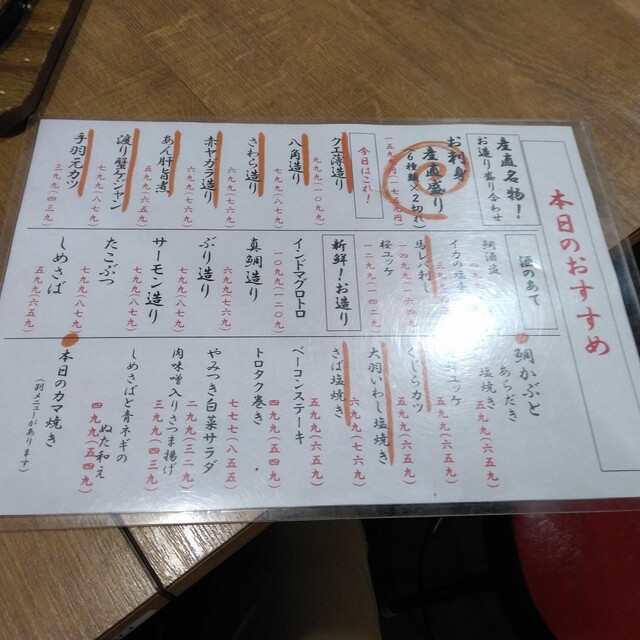 本日のおすすめ
産直名物！
お造り盛り合わせ
お刺身
産直盛り
(6種×2切)
今日はこれ！
クエ薄造り
九九九(一〇九九)
八角造り
七九九(八七九)
さわら造り
六九九(七六九)
赤ヤガラ造り
六九九(七六九)
あん肝旨煮
五九九(六五九)
渡り蟹ケジャン
七九九(八七九)
手羽元カツ
三九九(四三九)
酒のあて
鯛酒盗
桜ユッケ
新鮮！お造り
インドマグロトロ
一〇九九(一二〇九)
真鯛造り
六九九(七六九)
ぶり造り
七九九(八七九)
サーモン造り
七九九(八七九)
たこぶつ
七九九(八七九)
しめさば
五九九(六五九)
鯛かぶと
あらだき
塩焼き
五九九(六五九)
くじらカツ
大羽いわし塩焼き
五九九(六五九)
さば塩焼き
六九九(七六九)
ベーコンステーキ
五九九(六五九)
トロタク巻き
四九九(五四九)
やみつき白菜サラダ
七七七(八五五)
肉味噌入りさつま揚げ
二九九(三二九)
しめさばと青ネギの
ぬた和え
四九九(五四九)
本日のカマ焼き
(別メニューが有ります)